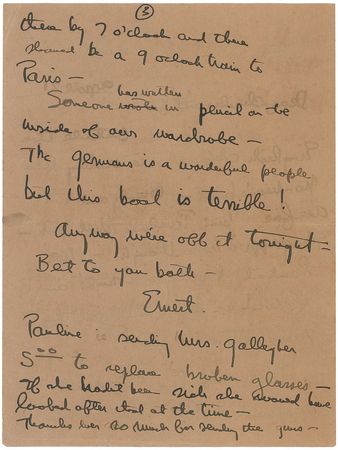 (3)
there by 7 o'clock and there
should be a 9 o'clock train to
Paris –
has written
Someone wrote in pencil on the
inside of our wardrobe –
"The germans is a wonderful people
but this boat is terrible!
Anyway we're off it tonight –
Best to you both –
Ernest.
Pauline is sending Mrs. Gallagher
5 00 to replace broken glasses –
If she hadn't been sick she would have
looked after that at the time –
Thanks ever so much for sending the guns –